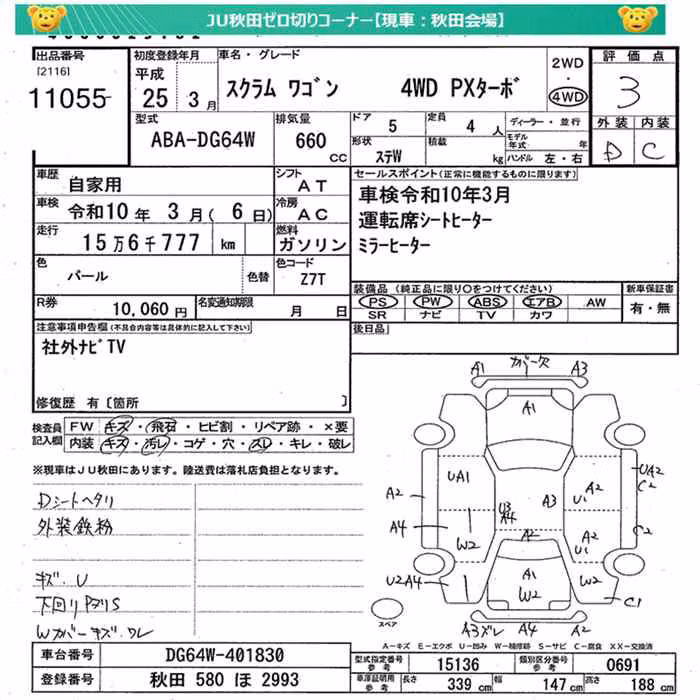 JU秋田ゼロ切りコーナー【現車：秋田会場】
出品番号
[2116]
11055
初度登録年月
平成
25 3 月
車名・グレード
スクラム ワゴン 4WD PXターボ
2WD
・
4WD
評価点
3
外装 内装
D C
型式
ABA-DG64W
排気量
660
cc
ドア 5
定員 4 人
形状 ステW
積載 kg
ディーラー・並行
モデル年式 年
ハンドル 左・右
車歴 自家用
シフト AT
車検 令和10 年 3 月( 6 日)
冷房 AC
走行 15 万 6 千 777 km
燃料 ガソリン
色 パール 色替
色コード Z7T
R券 10,060 円
名変通知期限 月 日
セールスポイント(正常に機能するものに限ります)
車検令和10年3月
運転席シートヒーター
ミラーヒーター
装備品 (純正品に限り○をつけてください)
新車保証書
PS PW ABS エアB AW
SR ナビ TV カワ
有・無
後日品
注意事項申告欄(不具合内容等は具体的に記入して下さい)
社外ナビTV
修復歴 有 [箇所 ]
検査員記入欄
FW キズ・飛石・ヒビ割・リペア跡・×要
内装 キズ・汚レ・コゲ・穴・スレ・キレ・破レ
※現車はJU秋田にあります。陸送費は落札店負担となります。
Dシートヘタリ
外装鉄粉
キズ.U
下回りPサリS
Wカバーキズ.ワレ
A1 カバー欠 A3
A1
UA1
A2
A4
U3
A4
A3
A2
U1
UA2
C2
A2
C2
W2
A2
U1
U2 A4
A1
W2
W2
C1
A3ズレ A4 A2
スペア
A－キズ E－エクボ U－凹み W－補修跡 S－サビ C－腐食 XX－交換済
車台番号 DG64W-401830
登録番号 秋田 580 ほ 2993
型式指定番号 参考 15136
類別区分番号 参考 0691
車庫証明用 参考
長さ 339 cm
幅 147 cm
高さ 188 cm